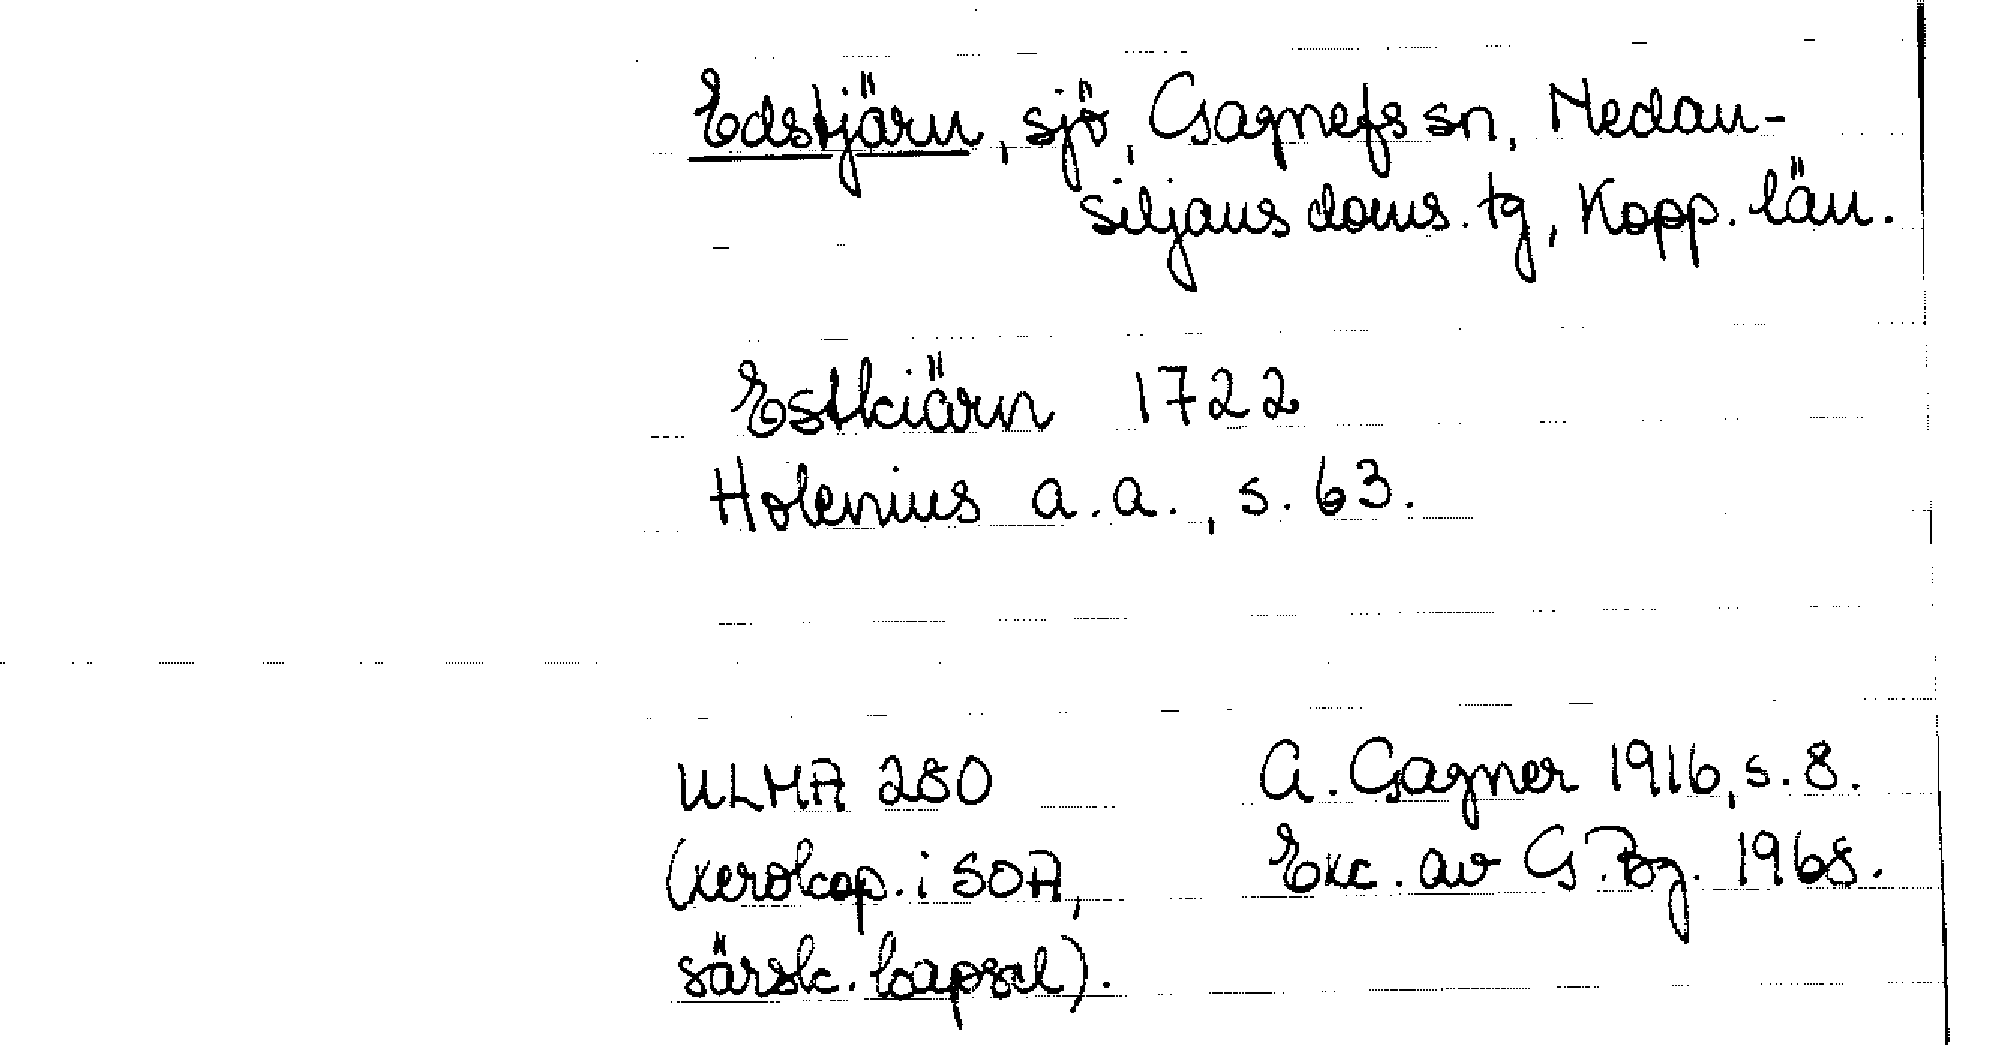 Edstjärn, sjö, Gagnefs sn, Nedan-
siljans doms. tg, Kopp. län.
Estkiärn 1722
Holenius a.a., s. 63.
ULMA 280
(xerokop. i SOA,
särsk. kapsel).
A. Gagner 1916, s. 8.
Exc. av G. Bg. 1968.